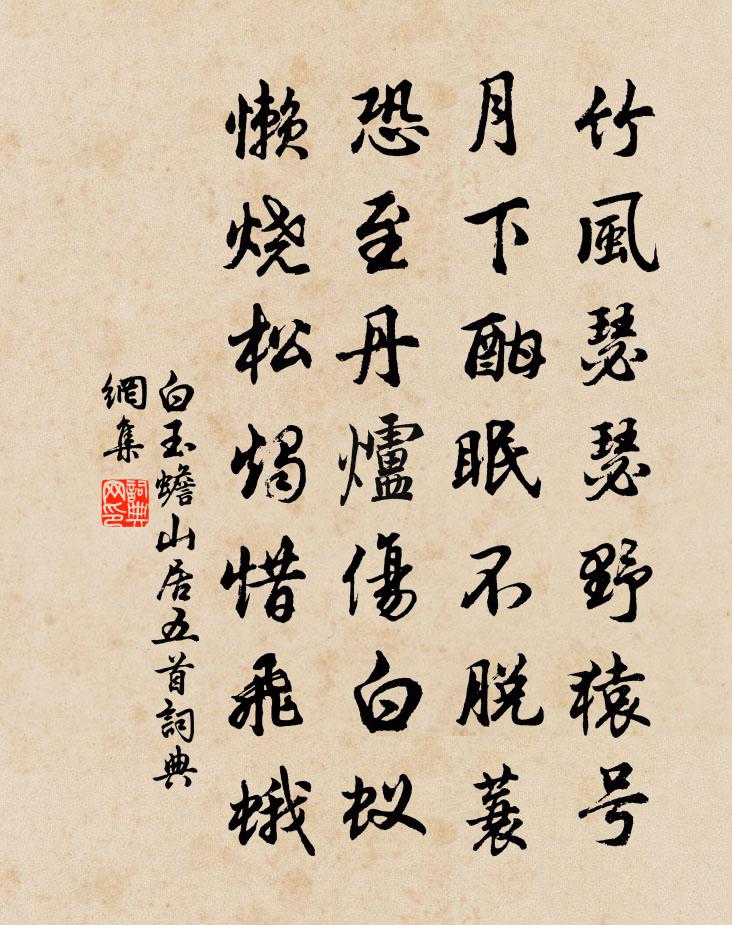 竹風瑟瑟野猿号
月下酣眠不脱蓑
恐至丹爐傷白蚁
懒烧松燭惜飛蛾
白玉蟾山居五首詞典
網集
詞典
网印